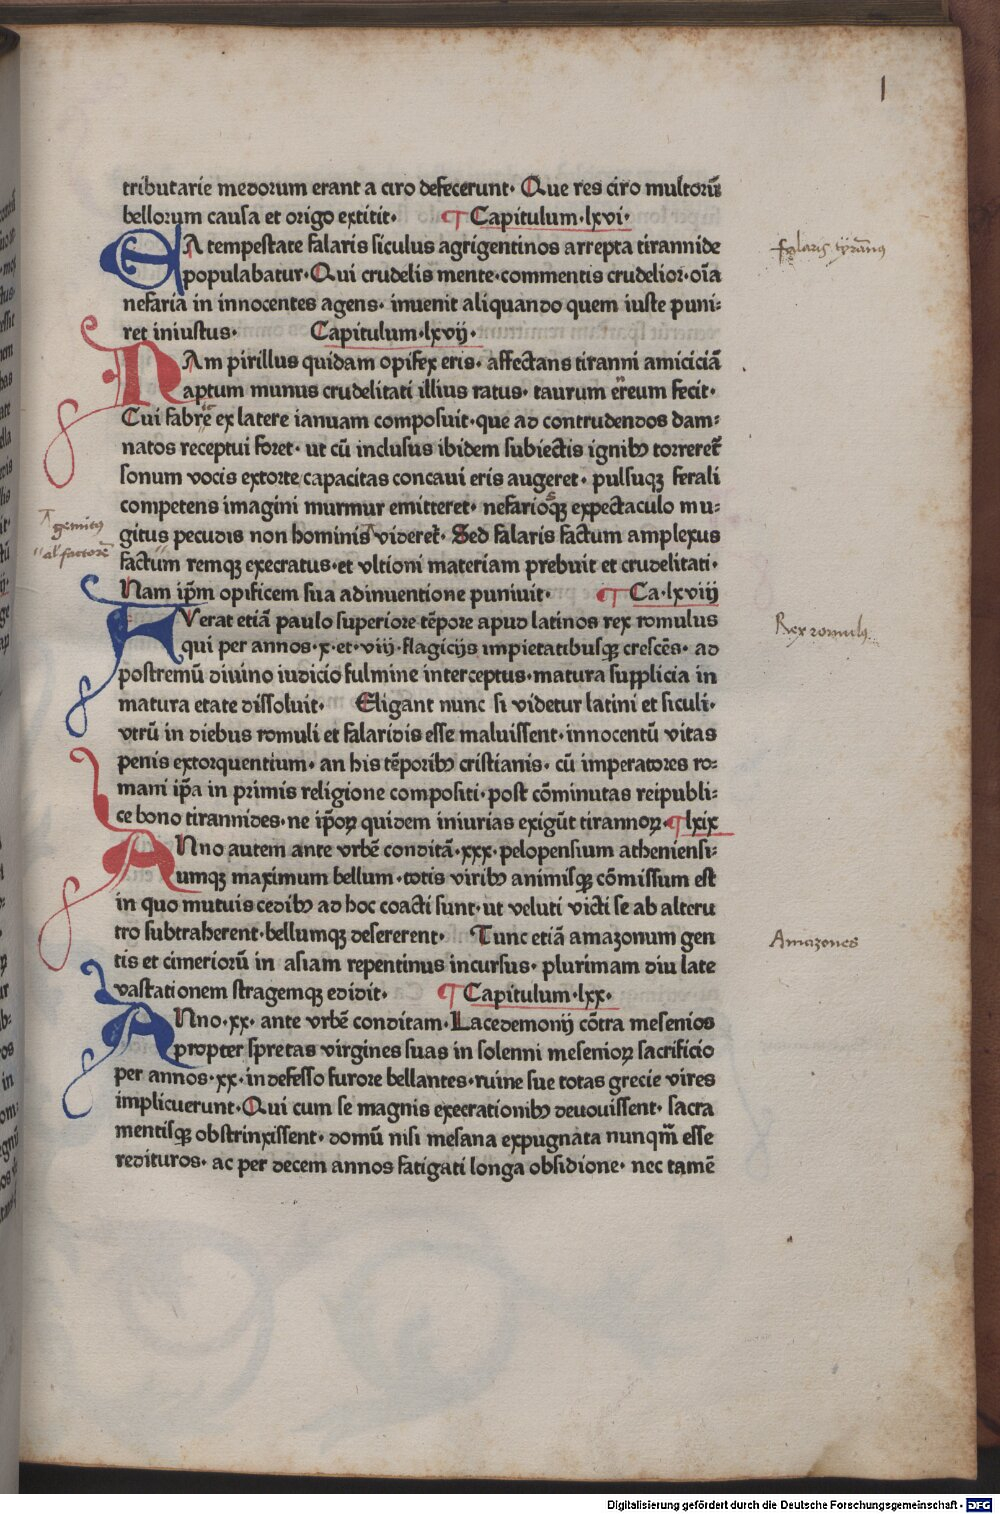 1
tributarie medorum erant a ciro defecerunt· Que res ciro multorū
bellorum causa et origo extitit· ¶ Capitulum·lxvi·
EA tempestate falaris siculus agrigentinos arrepta tirannide
falaris tyrannus
populabatur·Qui crudelis mente·commentis crudelior·oīa
nefaria in innocentes agens· inuenit aliquando quem iuste puni-
ret iniustus· Capitulum·lxvij·
NAm pirillus quidam opifex eris· affectans tiranni amiciciā
aptum munus crudelitati illius ratus· taurum ereum fecit·
Cui fabre ex latere ianuam composuit·que ad contrudendos dam-
natos receptui foret· ut cū inclusus ibidem subiectis ignibꝫ torreret̄
sonum vocis extorte capacitas concaui eris augeret· pulsuqꝫ ferali
competens imagini murmur emitteret· nefarioqꝫ expectaculo mu-
gitus pecudis non hominis videret̄· Sed falaris factum amplexus
gemitus
al' factorē
factum remqꝫ execratus·et vltioni materiam prebuit et crudelitati·
Nam ip̄m opificem sua adinuentione puniuit· ¶ Ca·lxviij
FVerat etiā paulo superiore tēpore apud latinos rex romulus
Rex romulus
qui per annos·x·et·viij·flagicijs impietatibusqꝫ crescēs· ad
postremū diuino iudicio fulmine interceptus·matura supplicia in
matura etate dissoluit· Eligant nunc si videtur latini et siculi·
vtrū in diebus romuli et falaridis esse maluissent·innocentū vitas
penis extorquentium· an his tēporibꝫ cristianis· cū imperatores ro-
mani ip̄a in primis religione compositi·post cōminutas reipubli-
ce bono tirannides·ne ip̄oꝝ quidem iniurias exigūt tirannoꝝ·¶ lxix
ANno autem ante vrbē conditā·xxx·pelopensium atheniensi-
umqꝫ maximum bellum·totis viribꝫ animisqꝫ cōmissum est
in quo mutuis cedibꝫ ad hoc coacti sunt·ut veluti victi se ab alteru
tro subtraherent·bellumqꝫ desererent· Tunc etiā amazonum gen
Amazones
tis et cimeriorū in asiam repentinus incursus· plurimam diu late
vastationem stragemqꝫ edidit· ¶ Capitulum·lxx·
ANno·xx· ante vrbē conditam·Lacedemonij cōtra mesenios
propter spretas virgines suas in solenni mesenioꝝ sacrificio
per annos·xx·indefesso furore bellantes·ruine sue totas grecie vires
implicuerunt·Qui cum se magnis execrationibꝫ deuouissent· sacra
mentisqꝫ obstrinxissent· domū nisi mesana expugnata nunqm̄ esse
redituros· ac per decem annos fatigati longa obsidione· nec tamē
Digitalisierung gefördert durch die Deutsche Forschungsgemeinschaft - DFG